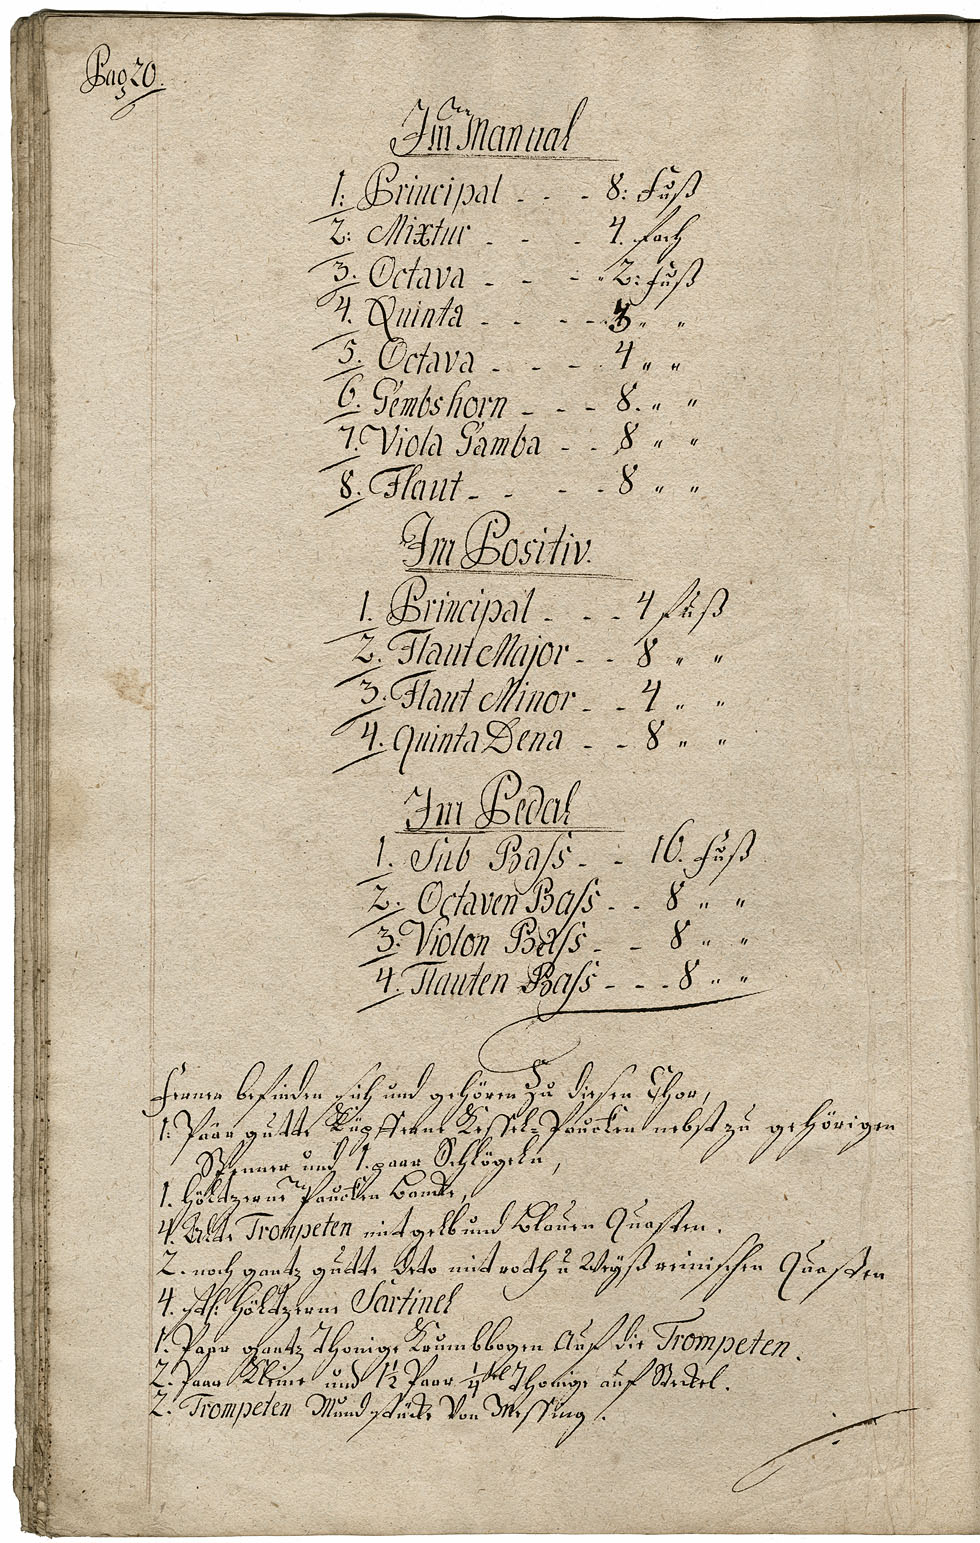 Pag 20.
Im Manual
1: Principal - - - 8: Fuß
2: Mixtur - - - 4. fach
3. Octava - - - 2: Fuß
4. Quinta - - - - 3 " "
5. Octava - - - 4 " "
6. Gembshorn - - - 8. " "
7. Viola Gamba - - 8 " "
8. Flaut - - - - 8 " "
Im Positiv.
1. Principal - - - 4 fuß
2. Flaut Major - - 8 " "
3. Flaut Minor - - 4 " "
4. Quinta Dena - - 8 " "
Im Pedal
1. Sub Bass - - 16. Fuß
2. Octaven Bass - - 8 " "
3. Violon Bass - - 8 " "
4. Flauten Bass - - - 8 " "
Ferner befinden sich und gehören zu diesen Chor,
1: Päär gutte Küpfferne Kessel-Paucken nebst zu gehörigen
Spanner und 1. paar Schlögeln,
1. Höltzerne Paucken
4. Alte Trompeten mit gelb und Blauen Quasten.
2. noch gantz gutte deto mit roth u Weyß Quasten
4. stk: Höltzerne Sartinel
1. Paar gantz Thonige Krumbbogen Auf die Trompeten.
2. Paar Kleine und 1½ Paar ¼tel Thonige auf
2. Trompeten Mund stücke Von Messing.